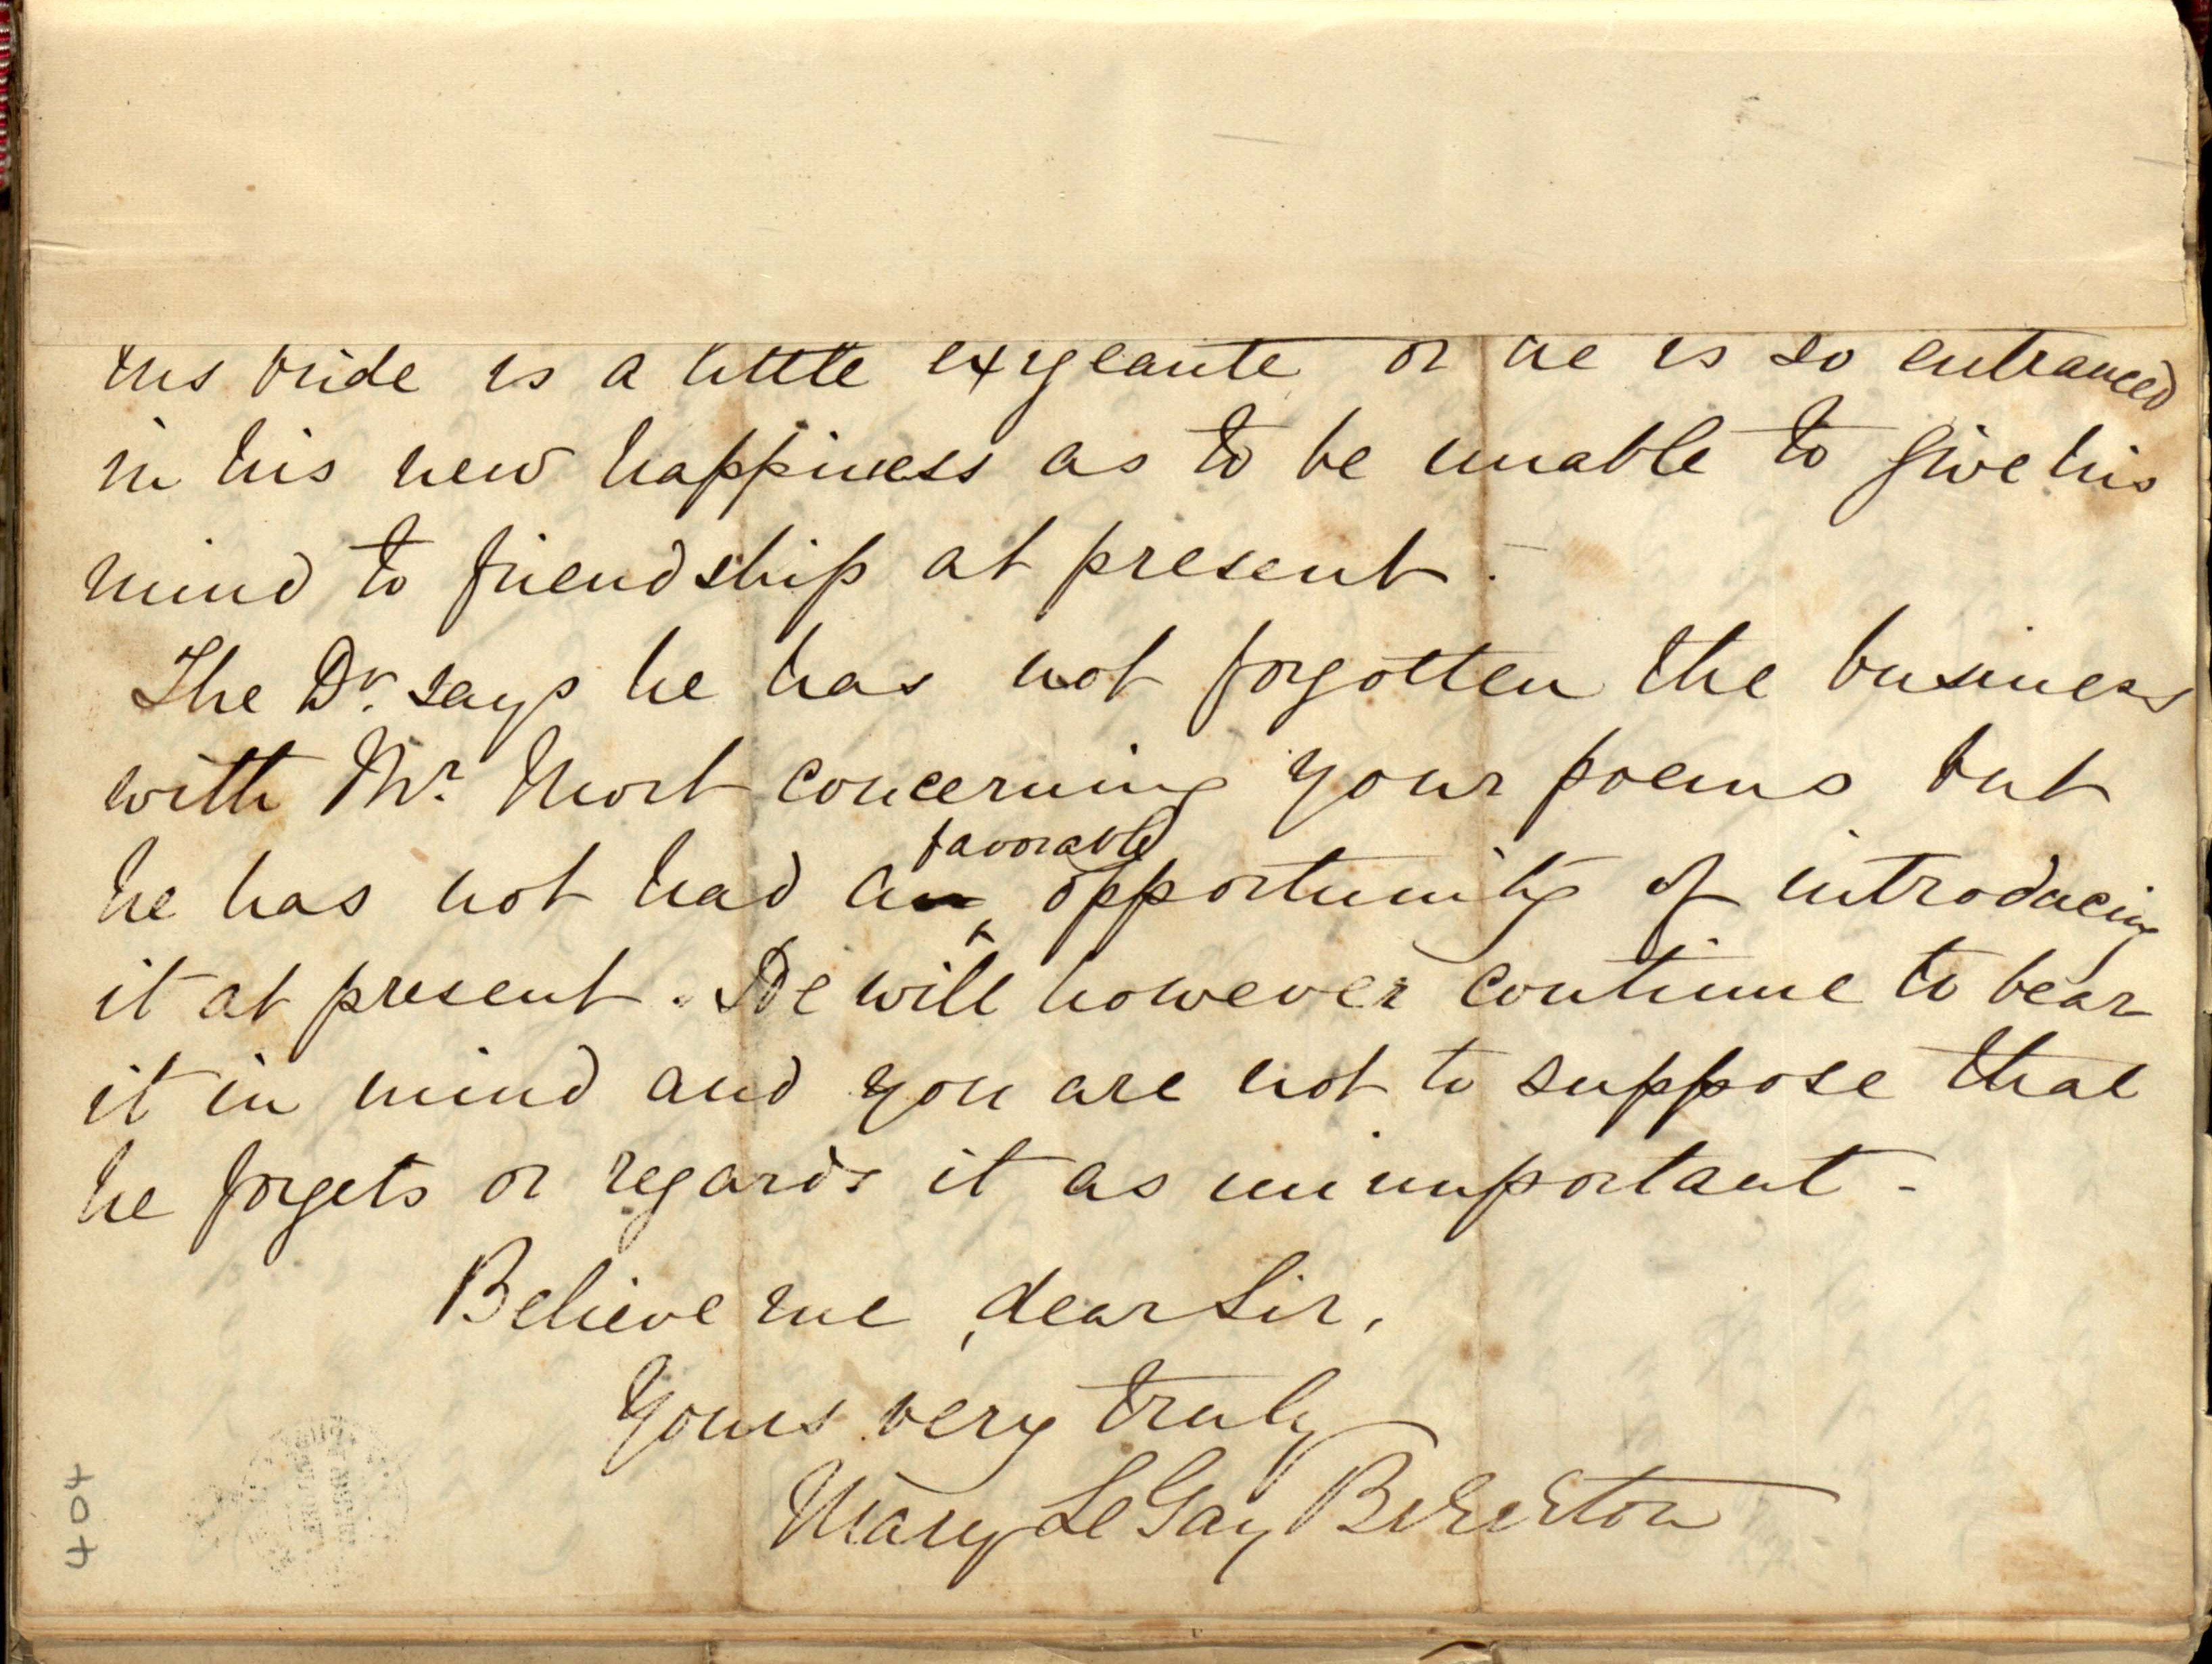 his bride is a little exigeante or he is so entranced
in his new happiness as to be unable to give his
mind to friendship at present.
The Dr. says he has not forgotten the business
with Mr. Mort concerning your poems but
favorable
he has not had a opportunity of introducing
it at present. He will however continue to bear
it in mind and you are not to suppose that
he forgets or regards it as unimportant -
Believe me, dear Sir,
Yours very truly
Mary Le Gay Brereton
404